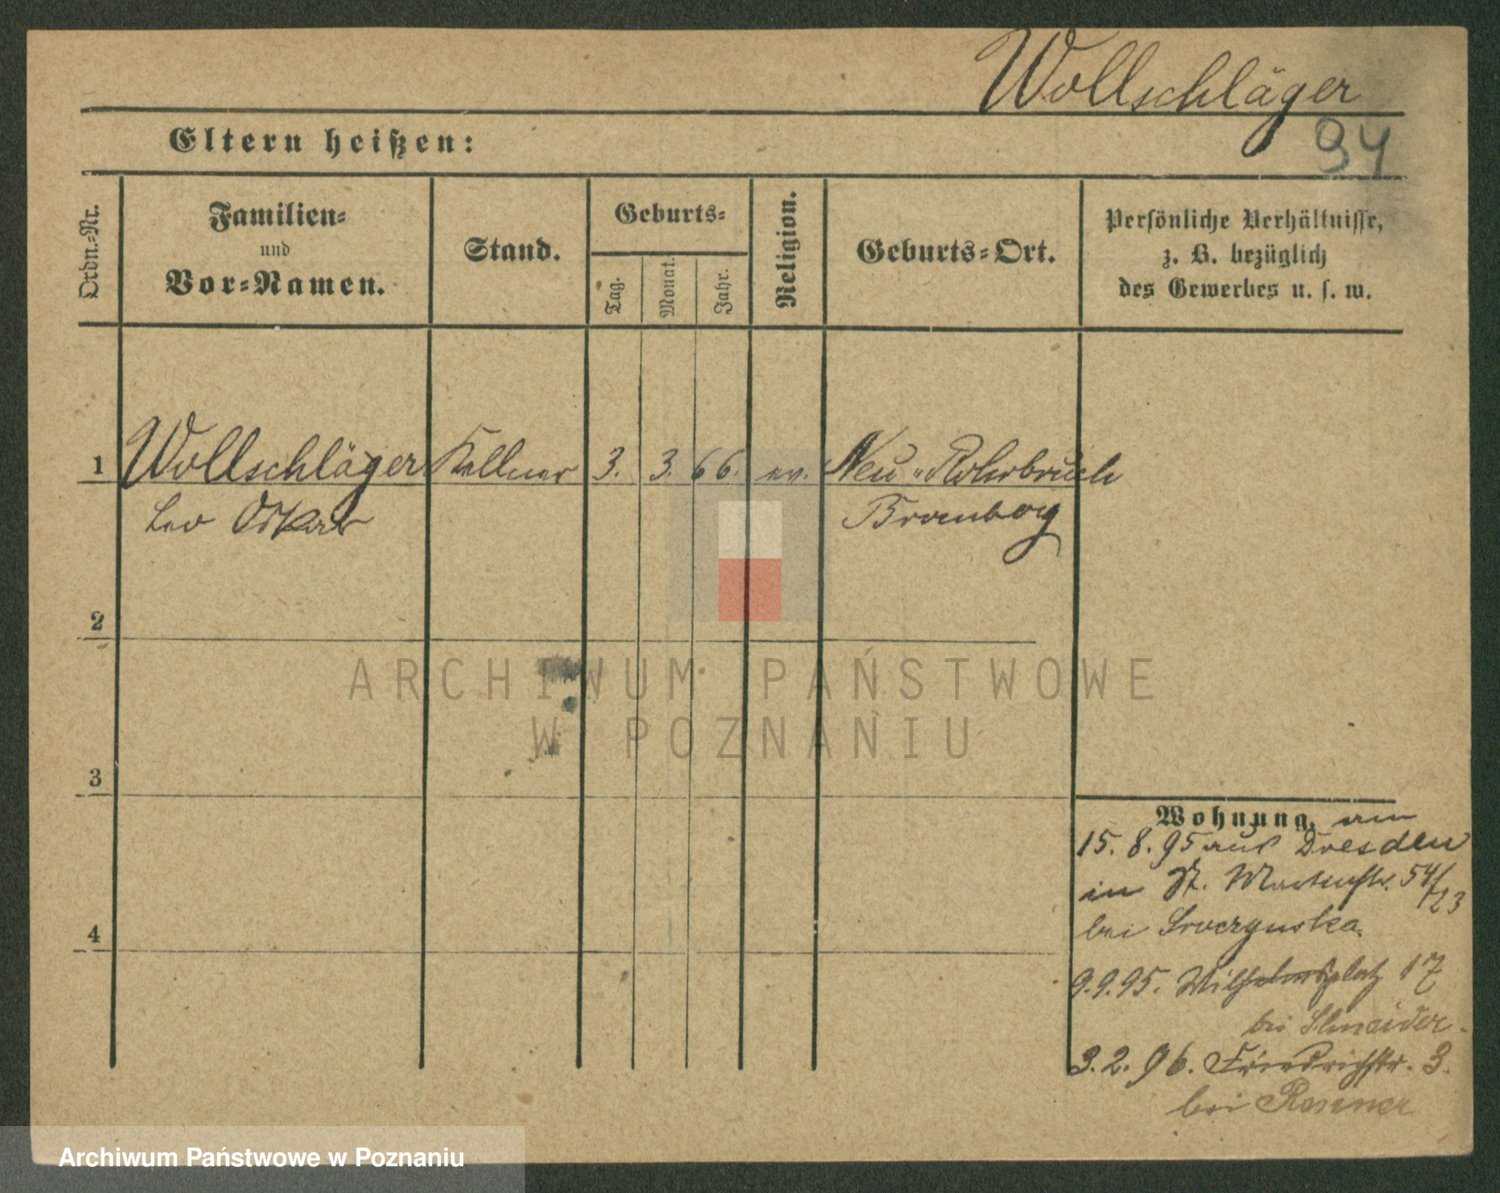 Wollschläger
94
Eltern heißen:
Ordn.-Nr.
Familien-
und
Vor-Namen.
Stand.
Geburts-
Tag.
Monat.
Jahr.
Religion.
Geburts-Ort.
Persönliche Verhältnisse,
z. B. bezüglich
des Gewerbes u. s. w.
1 Wollschläger Kellner 3. 3. 66. ev. Neu-Rohrbruch
Leo Oskar Bromberg
2
3
4
Wohnung. am
15. 8. 95 aus Dresden
in St. Martinstr. 54/23
bei
9.9.95. Wilhelmsplatz 17
bei Schneider.
3.2.96. Friedrichstr. 3.
bei
ARCHIWUM PAŃSTWOWE
W POZNANIU
Archiwum Państwowe w Poznaniu